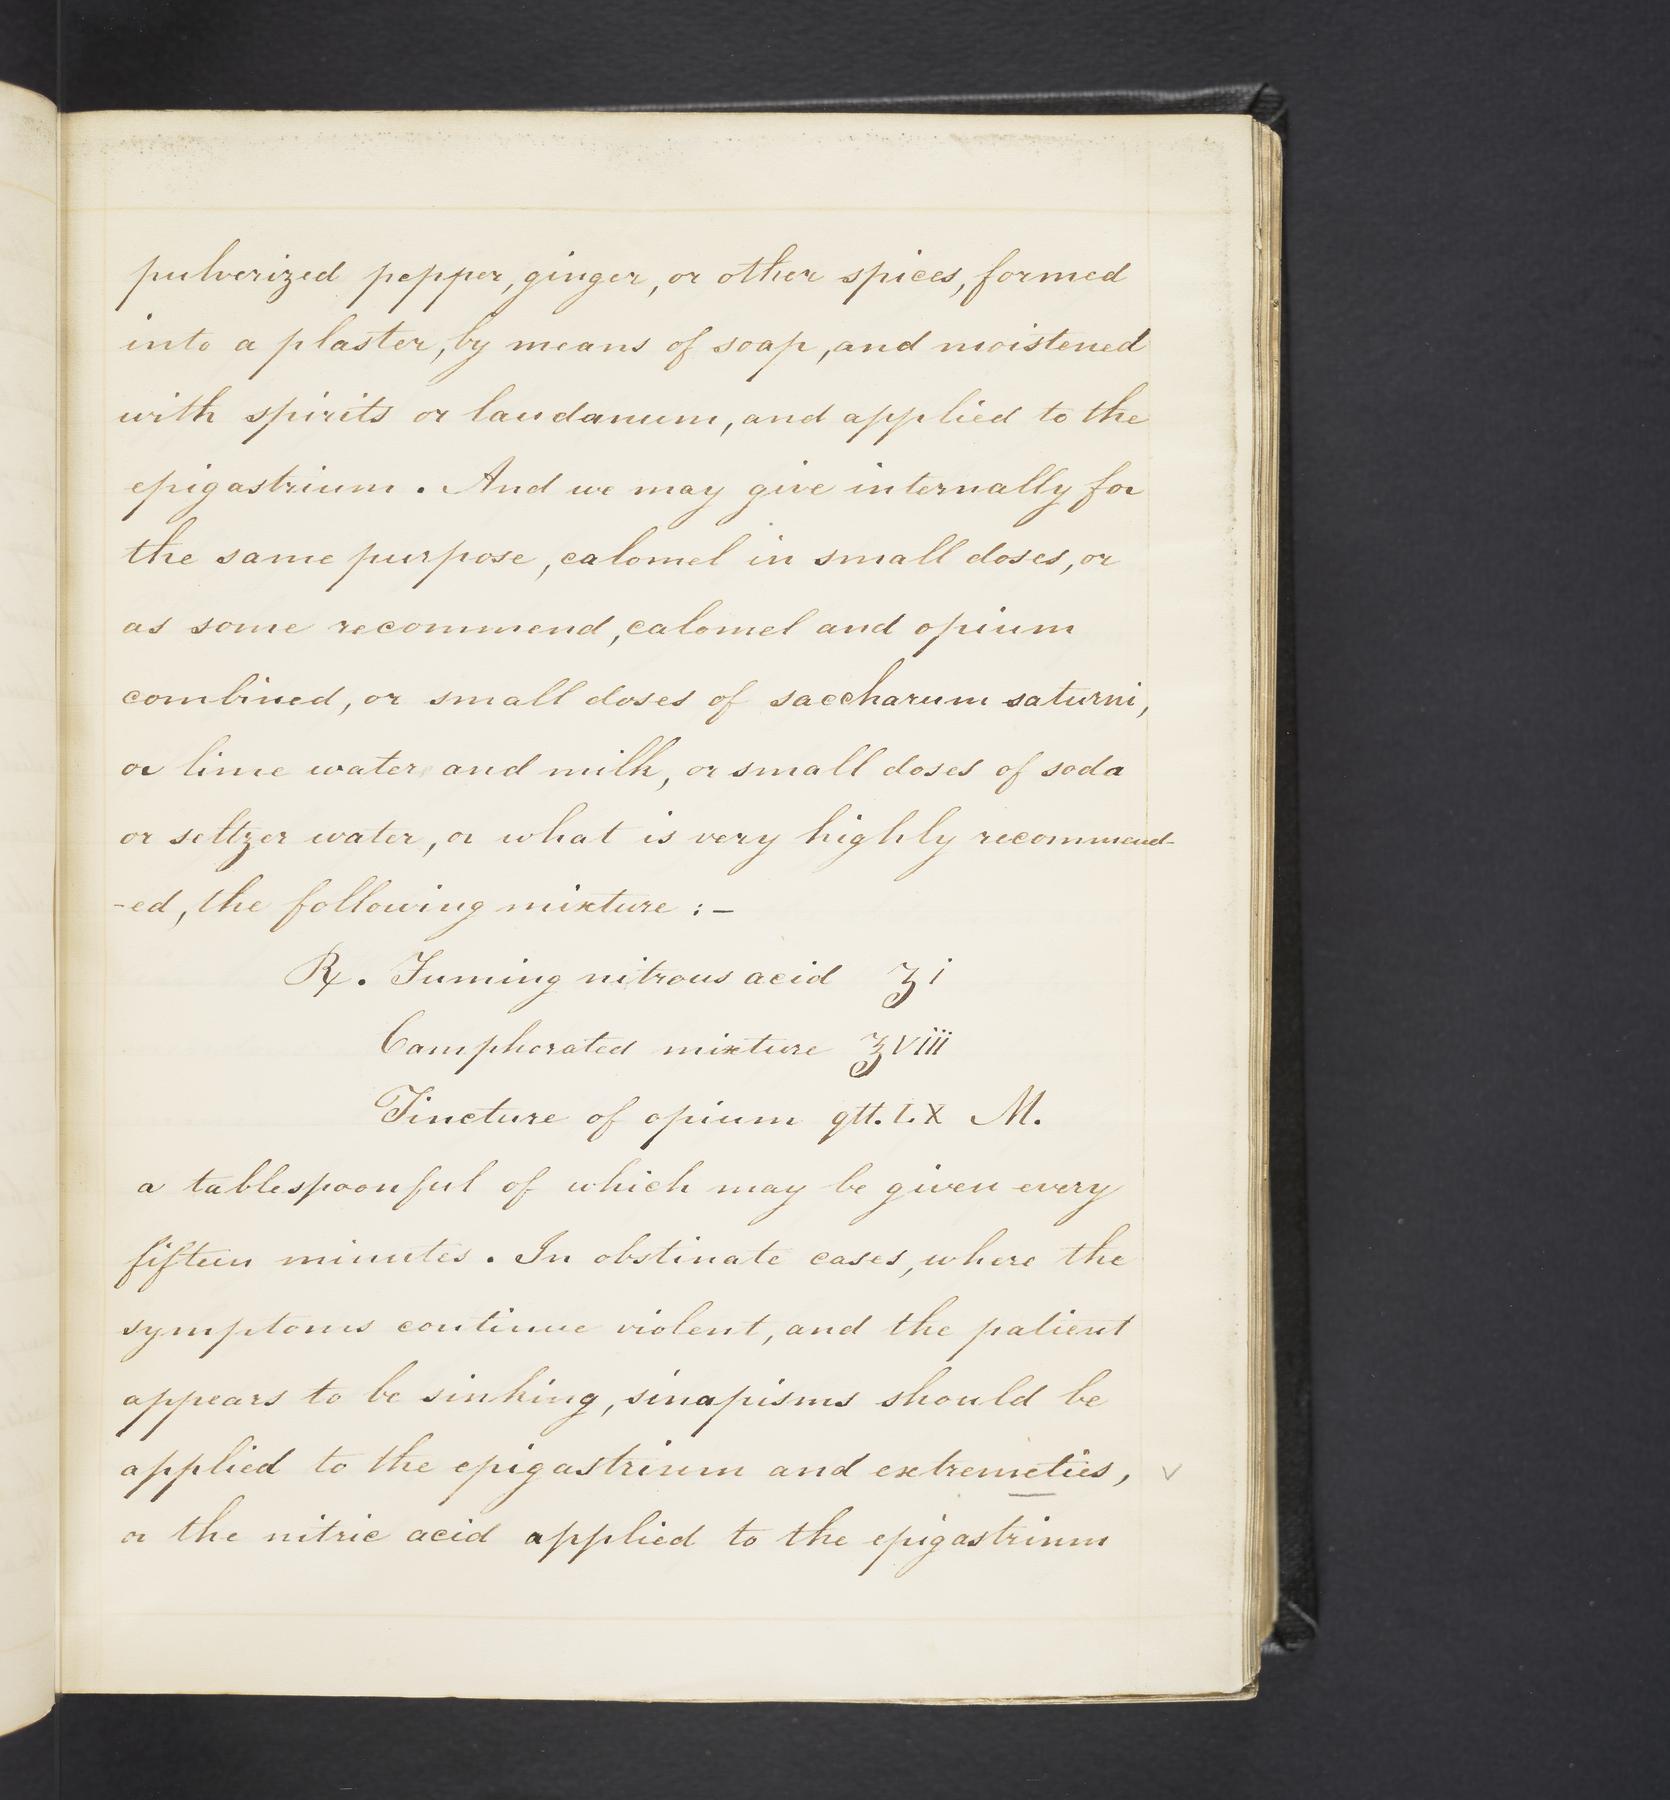 pulverized pepper, ginger, or other spices, formed
into a plaster, by means of soap, and moistened
with spirits or laudanum, and applied to the
epigastrium. And we may give internally for
the same purpose, calomel in small doses, or
as some recommend, calomel and opium
combined, or small doses of saccharum saturni,
or lime water and milk, or small doses of soda
or seltzer water, or what is very highly recommend-
-ed, the following mixture :-
℞. Fuming nitrous acid ʒ i
Camphorated mixture ℥ viii
Tincture of opium gtt. LX M.
a tablespoonful of which may be given every
fifteen minutes. In obstinate cases, where the
symptoms continue violent, and the patient
appears to be sinking, sinapisms should be
applied to the epigastrium and extremeties, v
or the nitric acid applied to the epigastrium